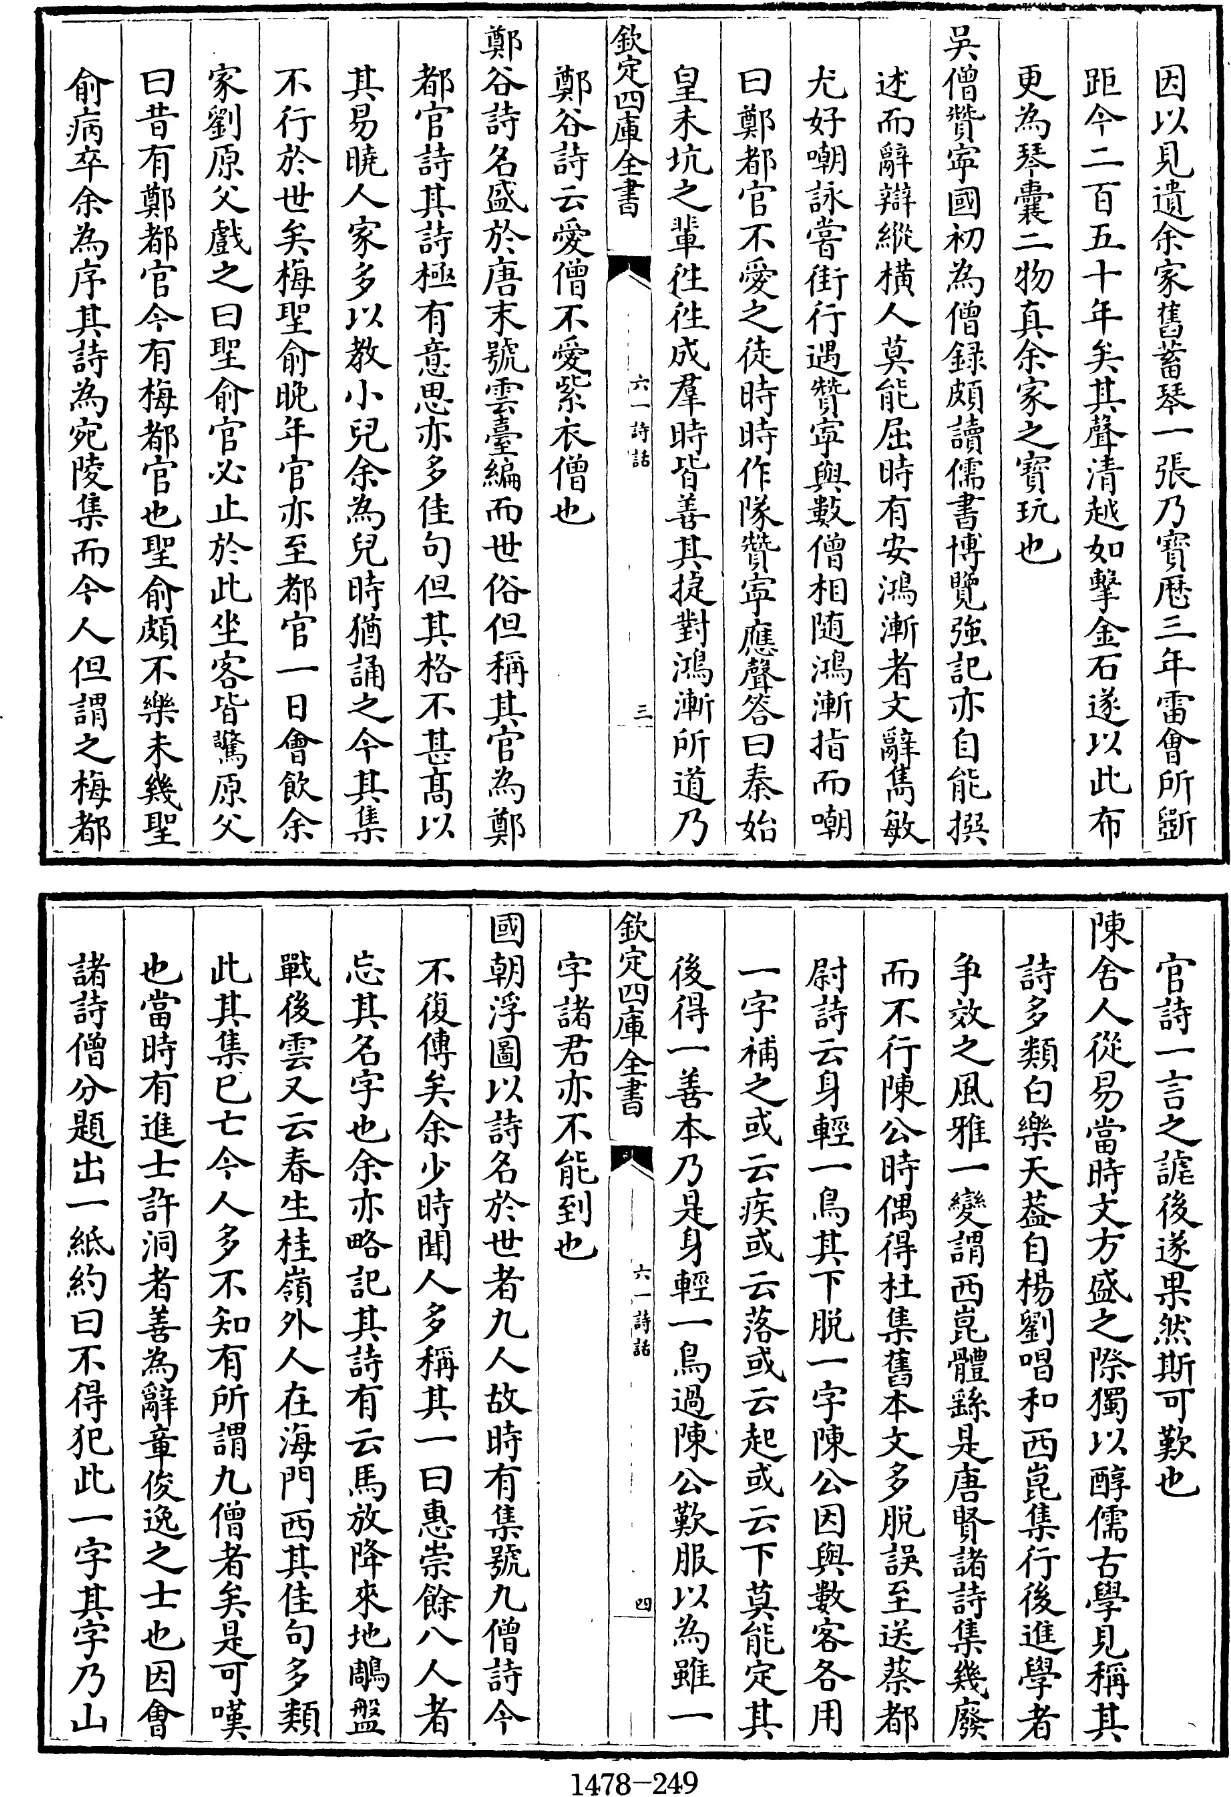 因以見遺余家舊蓄琴一張乃寶歷三年雷會所斵
距今二百五十年矣其聲清越如擊金石遂以此布
更為琴囊二物真余家之寶玩也
吳僧贊寧國初為僧録頗讀儒書博覽強記亦自能撰
述而辭辯縱橫人莫能屈時有安鴻漸者文辭雋敏
尤好嘲詠嘗街行遇贊寧與數僧相随鴻漸指而嘲
曰鄭都官不愛之徒時時作隊贊寧應聲答曰秦始
皇未坑之輩徃徃成羣時皆善其捷對鴻漸所道乃
欽定四庫全書
六一詩話
三
鄭谷詩云愛僧不愛紫衣僧也
鄭谷詩名盛於唐末號雲臺編而世俗但稱其官為鄭
都官詩其詩極有意思亦多佳句但其格不甚髙以
其易曉人家多以教小兒余為兒時猶誦之今其集
不行於世矣梅聖俞晚年官亦至都官一日會飲余
家劉原父戲之曰聖俞官必止於此坐客皆驚原父
曰昔有鄭都官今有梅都官也聖俞頗不樂未幾聖
俞病卒余為序其詩為宛陵集而今人但謂之梅都
官詩一言之謔後遂果然斯可歎也
陳舍人從易當時文方盛之際獨以醇儒古學見稱其
詩多類白樂天葢自楊劉唱和西崑集行後進學者
争效之風雅一變謂西崑體繇是唐賢諸詩集幾廢
而不行陳公時偶得杜集舊本文多脱誤至送蔡都
尉詩云身輕一鳥其下脱一字陳公因與數客各用
一字補之或云疾或云落或云起或云下莫能定其
後得一善本乃是身輕一鳥過陳公歎服以為雖一
欽定四庫全書
六一詩話
四
字諸君亦不能到也
國朝浮圖以詩名於世者九人故時有集號九僧詩今
不復傳矣余少時聞人多稱其一曰惠崇餘八人者
忘其名字也余亦略記其詩有云馬放降來地鵰盤
戰後雲又云春生桂嶺外人在海門西其佳句多類
此其集已亡今人多不知有所謂九僧者矣是可嘆
也當時有進士許洞者善為辭章俊逸之士也因會
諸詩僧分題出一紙約曰不得犯此一字其字乃山
1478-249